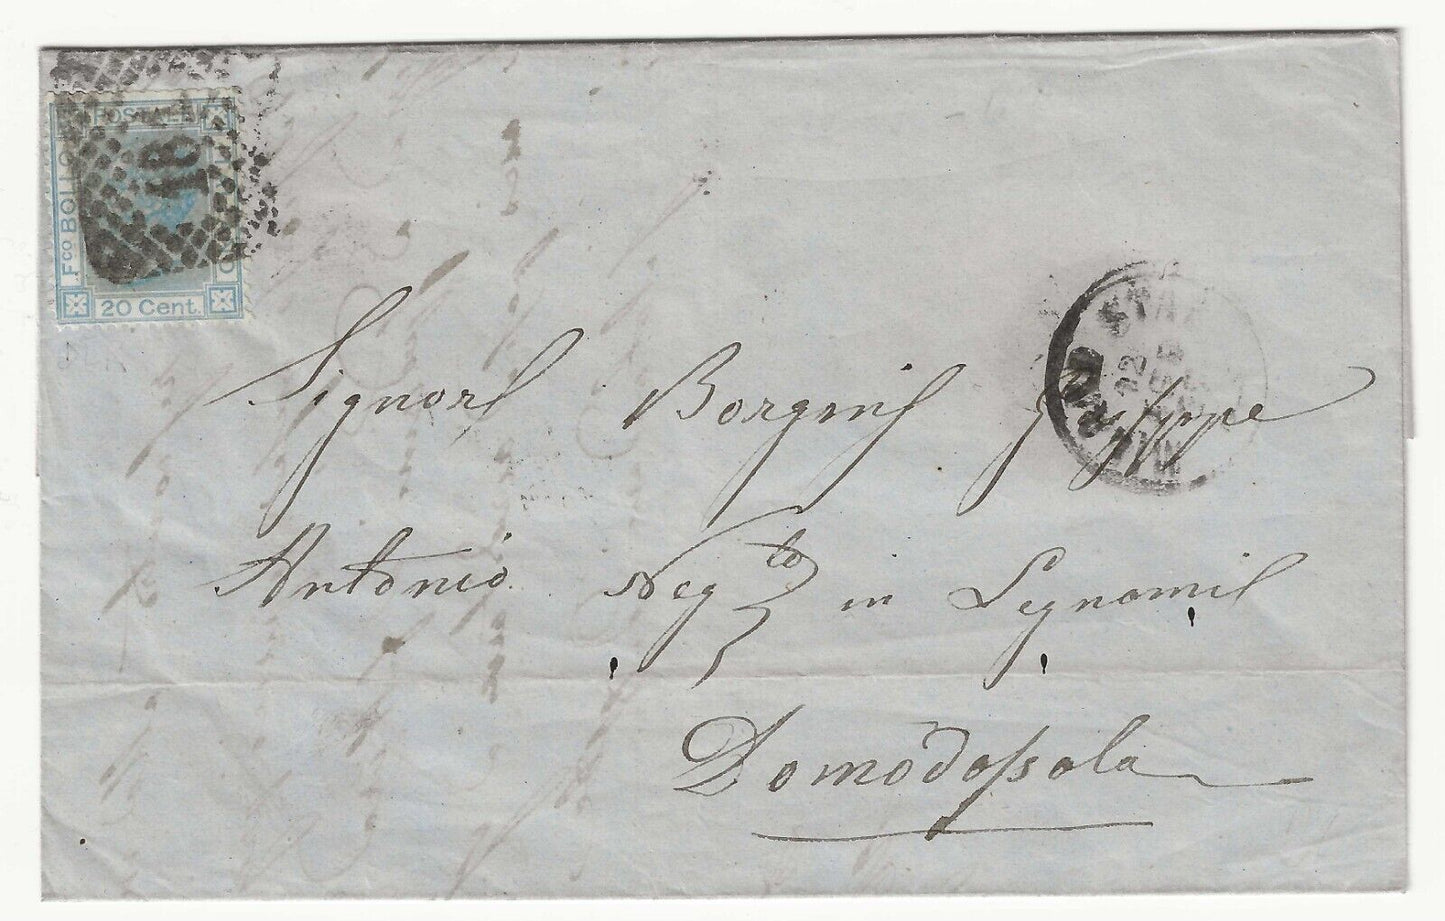 POSTALE
Fco BOLLO
20 Cent.
18
MILANO STAZ
22
Signore Borgnis Giuseppe
Antonio Negto in Legnami
Domodossola